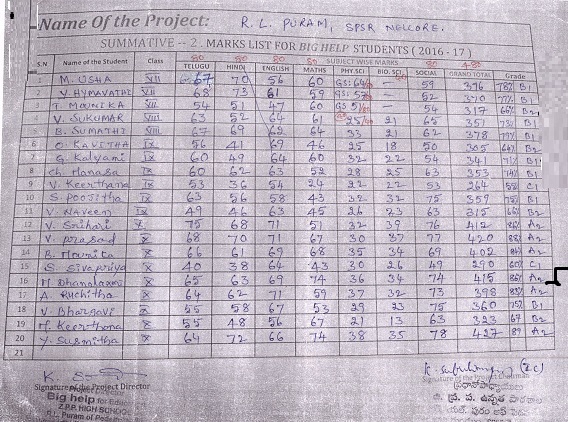 Name Of the Project: R. L. PURAM, SPSR NELLORE.
SUMMATIVE -- 2. MARKS LIST FOR BIG HELP STUDENTS ( 2016 - 17 )
SUBJECT WISE MARKS
80 80 80 80 80 480
S.N Name of the Student Class TELUGU HINDI ENGLISH MATHS PHY.SCI BIO. SCI SOCIAL GRAND TOTAL Grade
1 M. USHA VII 67 70 56 60 GS: 64 - 59 376 78% B1
2 V. HYMAVATHI VII 68 73 61 59 GS: 57 - 52 370 77% B1
3 T. MOUNIKA VII 54 51 47 60 GS 51 - 54 317 66% B2
4 V. SUKUMAR VIII 63 52 64 61 25 21 65 351 73% B1
5 B. SUMATHI VIII 67 69 62 64 33 21 62 378 79% B1
6 O. KAVITHA IX 56 41 69 46 25 18 50 305 64% B2
7 G. Kalyani IX 60 49 64 60 32 22 54 341 71% B1
8 Ch. Manasa IX 60 62 63 52 28 25 63 353 74% B1
9 V. Keerthana IX 53 36 54 24 22 22 53 264 55% C1
10 S. Poojitha IX 63 56 58 43 32 32 75 359 75% B1
11 V. NAveen IX 49 46 63 45 26 23 63 315 66% B2
12 V. Srihari X 75 68 71 51 32 39 76 412 86% A2
13 V. prasad X 68 70 71 67 30 37 77 420 88% A2
14 B. Mounica X 66 61 69 68 35 34 69 402 84% A2
15 S. Sivapriya X 40 38 64 43 30 26 49 290 60% C1
16 M Dhanalaxmi X 65 63 69 74 36 34 74 415 86% A2
17 A. Ruchitha X 64 62 71 59 37 32 73 398 83% A2
18 V. Bhargavi X 55 58 67 53 29 23 75 360 75% B1
19 M. Keerthana X 55 48 56 67 21 13 63 323 67 B2
20 Y. Susmitha X 64 72 66 74 38 35 78 427 89 A2
21
Signature of the Project Director
Big help for
Z.P.P. HIGH SCHOOL
Puram of